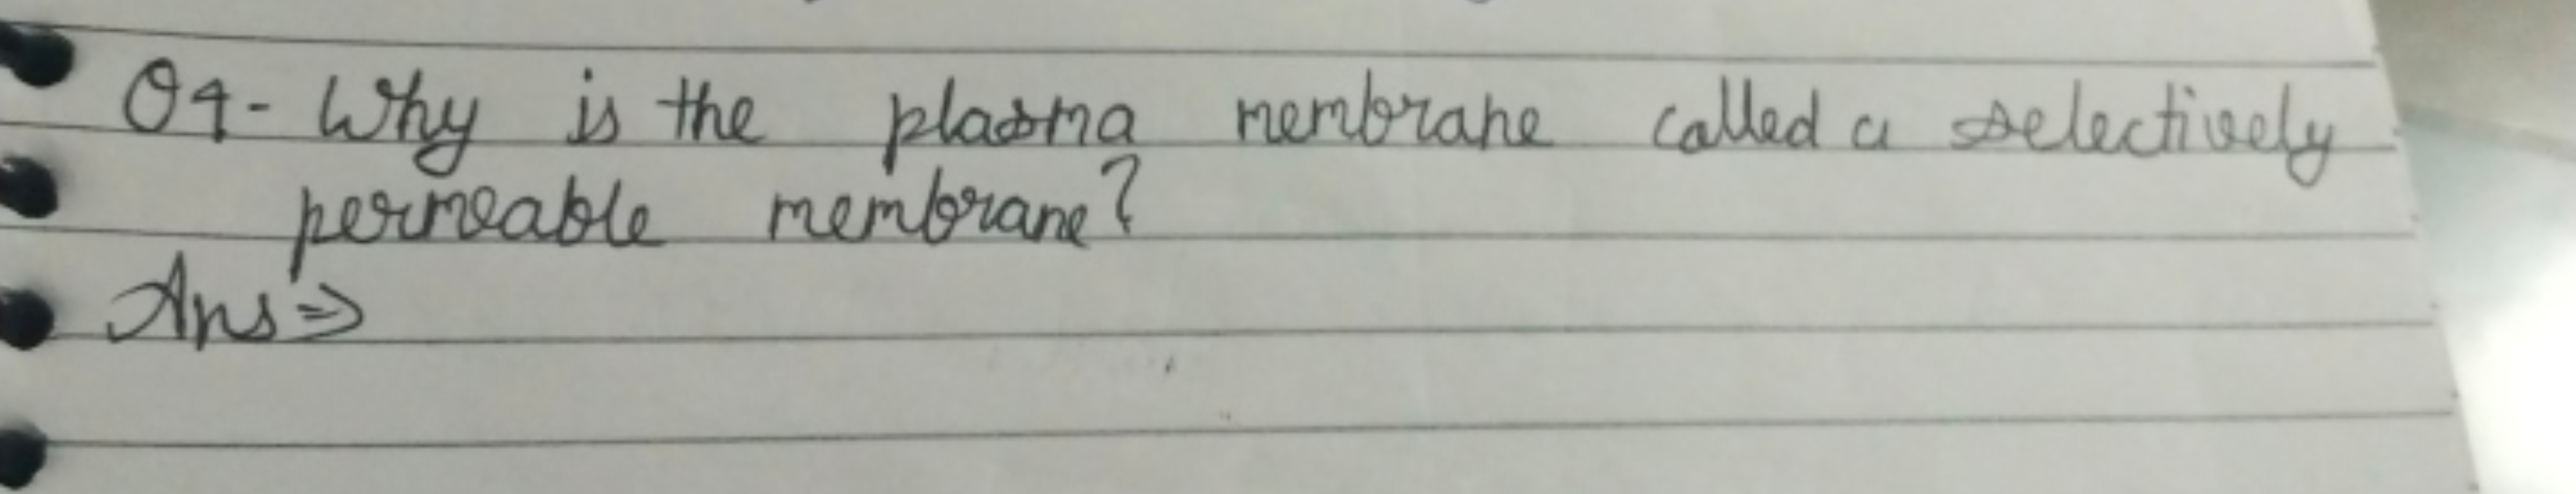 Q4- Why is the plasma membrane called a selectively
permeable membrane?
Ans⇒